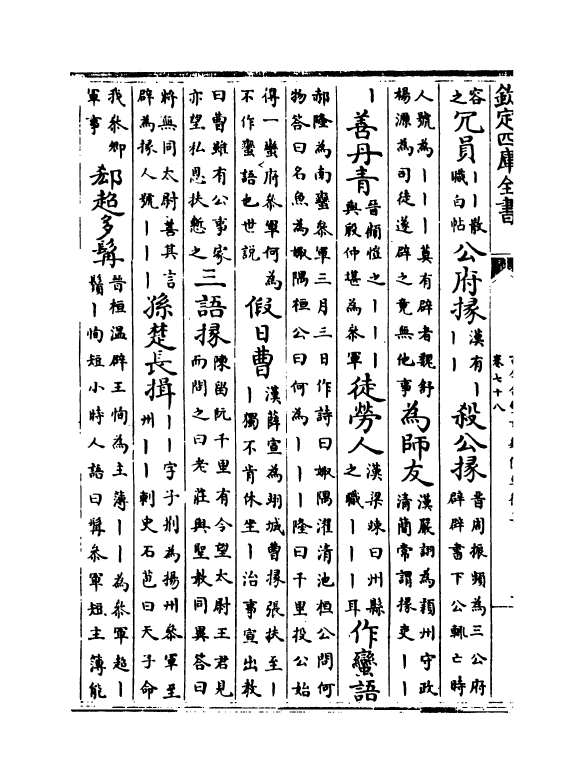 欽定四庫全書
卷七十八
容丨丨散
之
冗員
職白帖
公府掾
漢有丨
丨丨
殺公掾
晉周振頻為三公府
辟辟書下公輒亡時
人號為丨丨丨莫有辟者魏舒
楊源為司徒遂辟之竟無他事
為師友
漢嚴詡為潁州守政
清簡常謂掾吏丨丨
丨
善丹青
晉顧愷之丨丨丨
與殷仲堪為參軍
徒勞人
漢梁竦曰州縣
之職丨丨丨耳
作蠻語
郝隆為南蠻參軍三月三日作詩曰娵隅濯清池桓公問何
物答曰名魚為娵隅桓公曰何為丨丨丨隆曰千里投公始
得一蠻府參軍何為
不作蠻語也世說
假日曹
漢薛宣為翊城曹掾張扶至丨
丨獨不肯休坐丨治事宣出教
曰曹雖有公事家
亦望私恩扶慙之
三語掾
陳留阮千里有令望太尉王君見
而問之曰老莊與聖教同異答曰
將無同太尉善其言
辟為掾人號丨丨丨
孫楚長揖
丨丨字子荆為揚州參軍至
州丨丨刺史石苞曰天子命
我參卿
軍事
郄超多髯
晉桓溫辟王恂為主簿丨丨為參軍超丨
鬚丨恂短小時人語曰髯參軍短主簿能